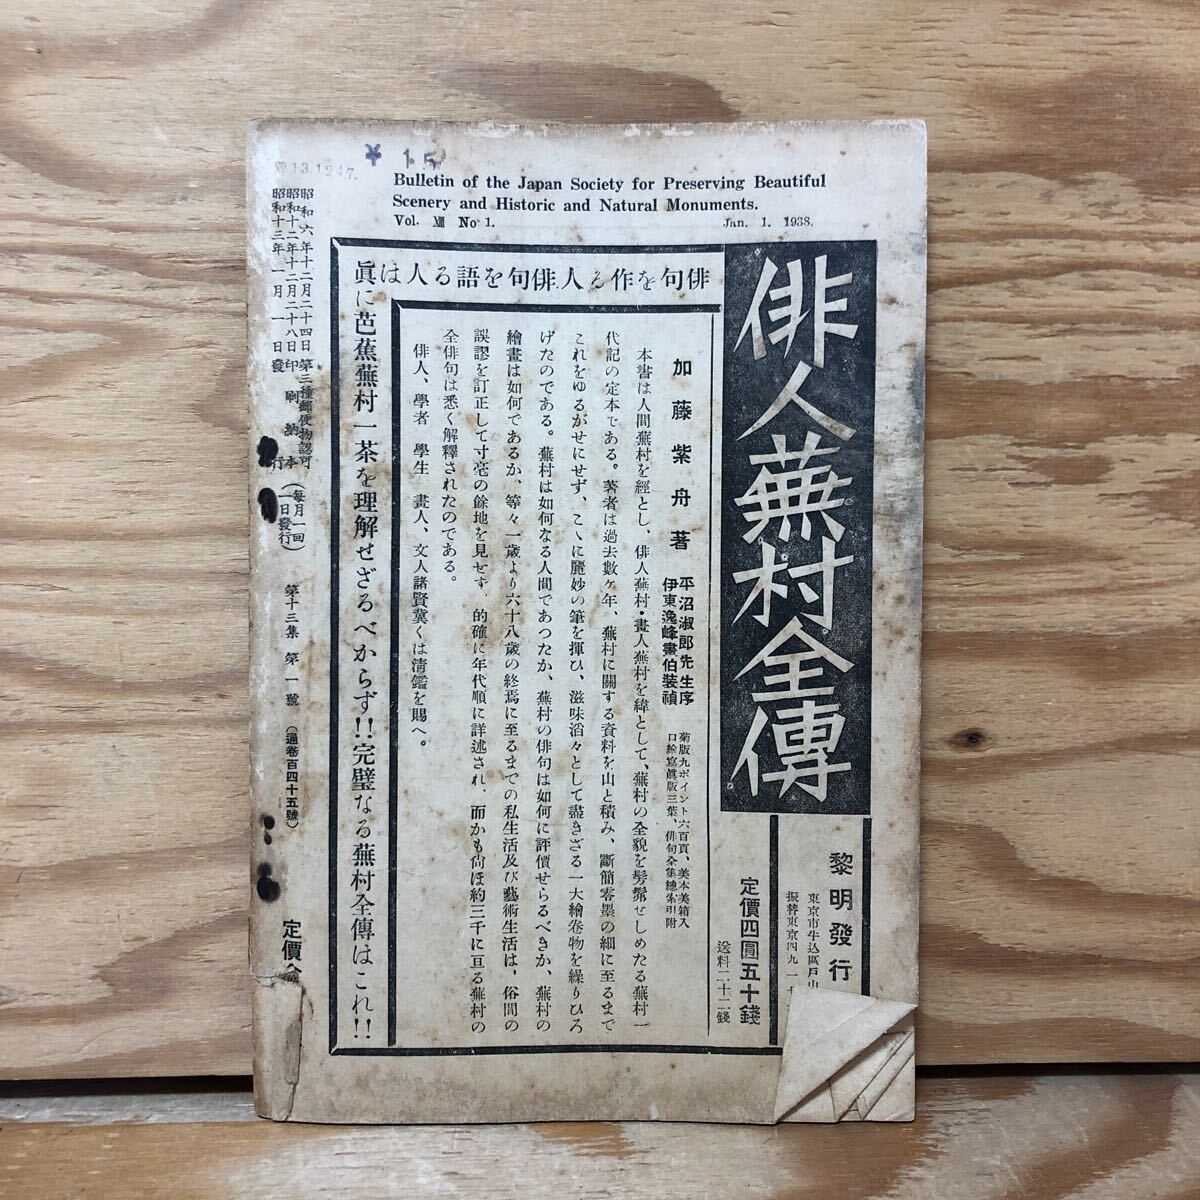 ¥ 15
Bulletin of the Japan Society for Preserving Beautiful
Scenery and Historic and Natural Monuments.
Vol. XIII No 1.
Jan. 1. 1938.
俳人蕪村全傳
黎明發行
東京市牛込區戸山
振替東京四九一
定價四圓五十錢
送料二十二錢
俳句を作る人俳句を語る人は
眞に芭蕉蕪村一茶を理解せざるべからず!!完璧なる蕪村全傳はこれ!!
加藤紫舟著
平沼淑郎先生序
伊東逸峰畫伯裝幀
菊版九ポイント六百頁、美本美箱入
口絵寫眞版三葉、俳句全集總索引附
本書は人間蕪村を經とし、俳人蕪村・畫人蕪村を緯として、蕪村の全貌を髣髴せしめたる蕪村一
代記の定本である。著者は過去數ヶ年、蕪村に關する資料を山と積み、斷簡零墨の細に至るまで
これをゆるがせにせず、こゝに麗妙の筆を揮ひ、滋味滔々として盡きざる一大繪卷物を繰りひろ
げたのである。蕪村は如何なる人間であつたか、蕪村の俳句は如何に評價せらるべきか、蕪村の
繪畫は如何であるか、等々一歳より六十八歳の終焉に至るまでの私生活及び藝術生活は、俗間の
誤謬を訂正して寸毫の餘地を見せず、的確に年代順に詳述され、而かも尙ほ約三千に亘る蕪村の
全俳句は悉く解釋されたのである。
俳人、學者 學生 畫人、文人諸賢冀くは淸鑑を賜へ。
昭和六年十二月二十四日 第三種郵便物認可
昭和十二年十二月二十八日 印刷納本
昭和十三年一月一日發行
(每月一回一日發行)
第十三集 第一號
(通卷百四十五號)
定價